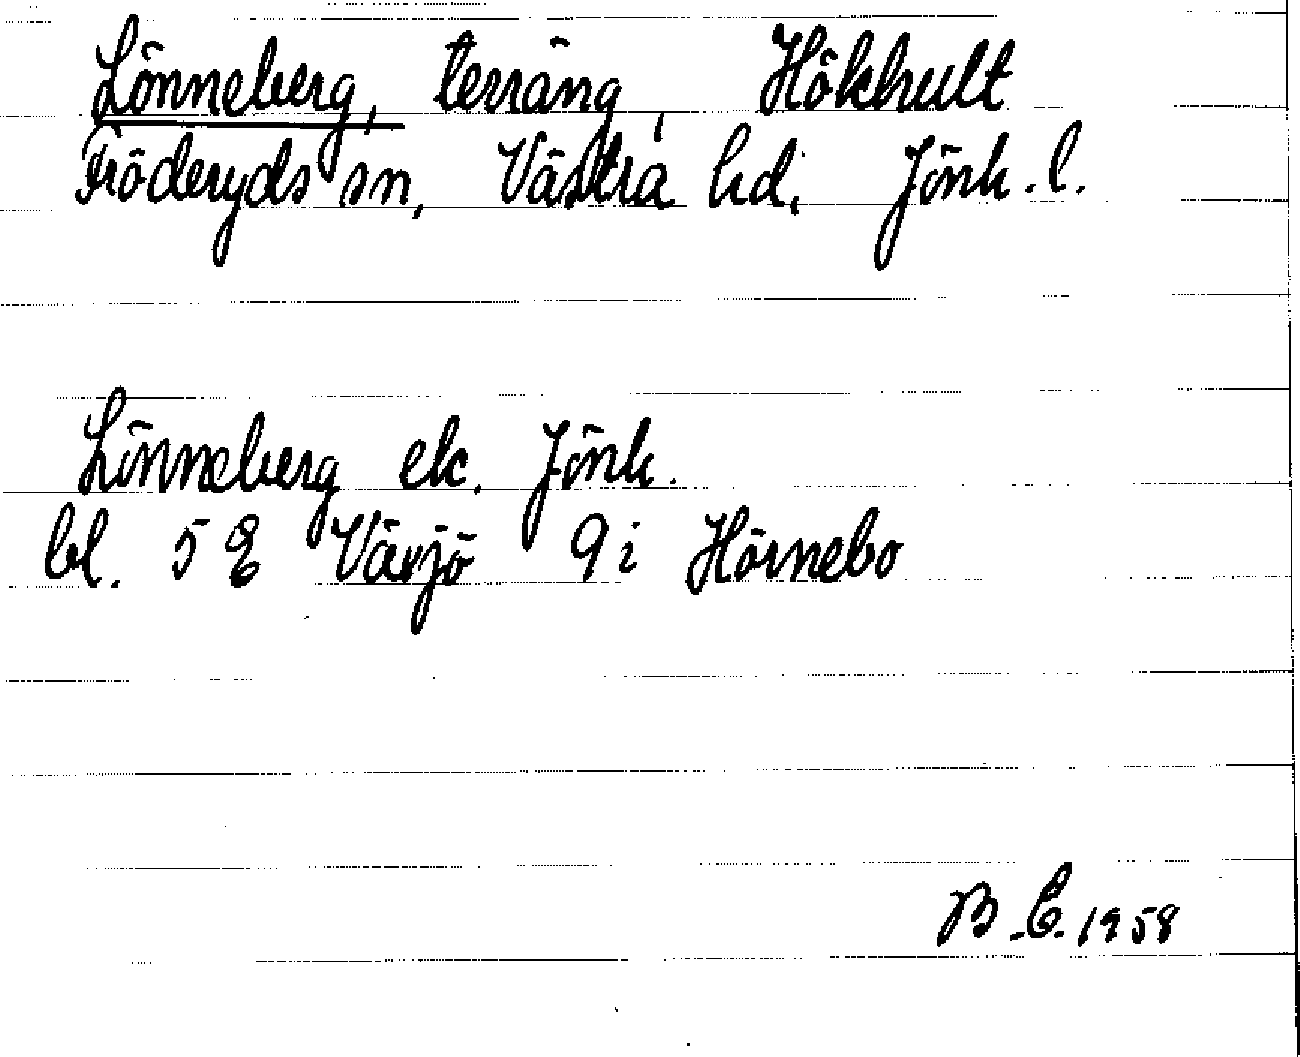 Lönneberg, terräng, Hökhult
Fröderyds sn, Västra hd, Jönk. l.
Lönneberg ek. Jönk.
bl. 5 E Växjö 9 i Hörnebo
B.E. 1958